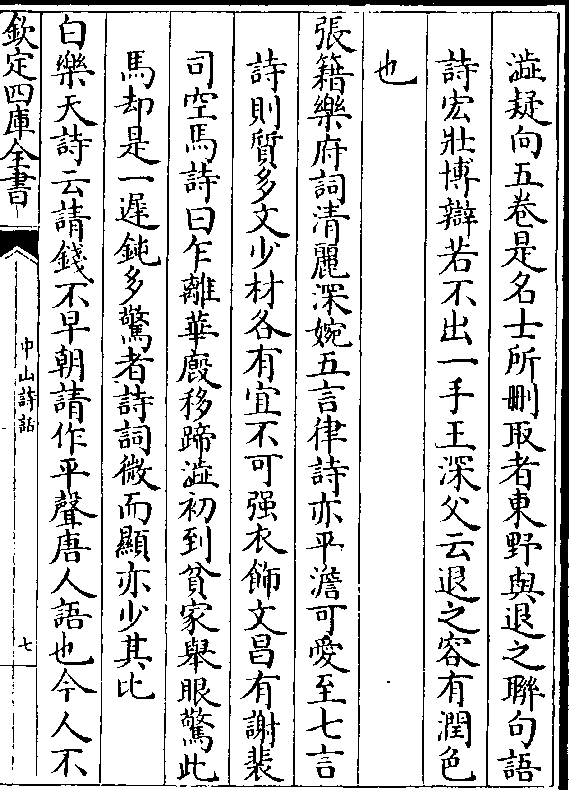 澁疑向五卷是名士所刪取者東野與退之聯句語
詩宏壯博辯若不出一手王深父云退之容有潤色
也
張籍樂府詞清麗深婉五言律詩亦平澹可愛至七言
詩則質多文少材各有宜不可强衣飾文昌有謝裴
司空馬詩曰乍離華廏移蹄澁初到貧家舉眼驚此
馬却是一遲鈍多驚者詩詞微而顯亦少其比
白樂天詩云請錢不早朝請作平聲唐人語也今人不
欽定四庫全書
中山詩話
七